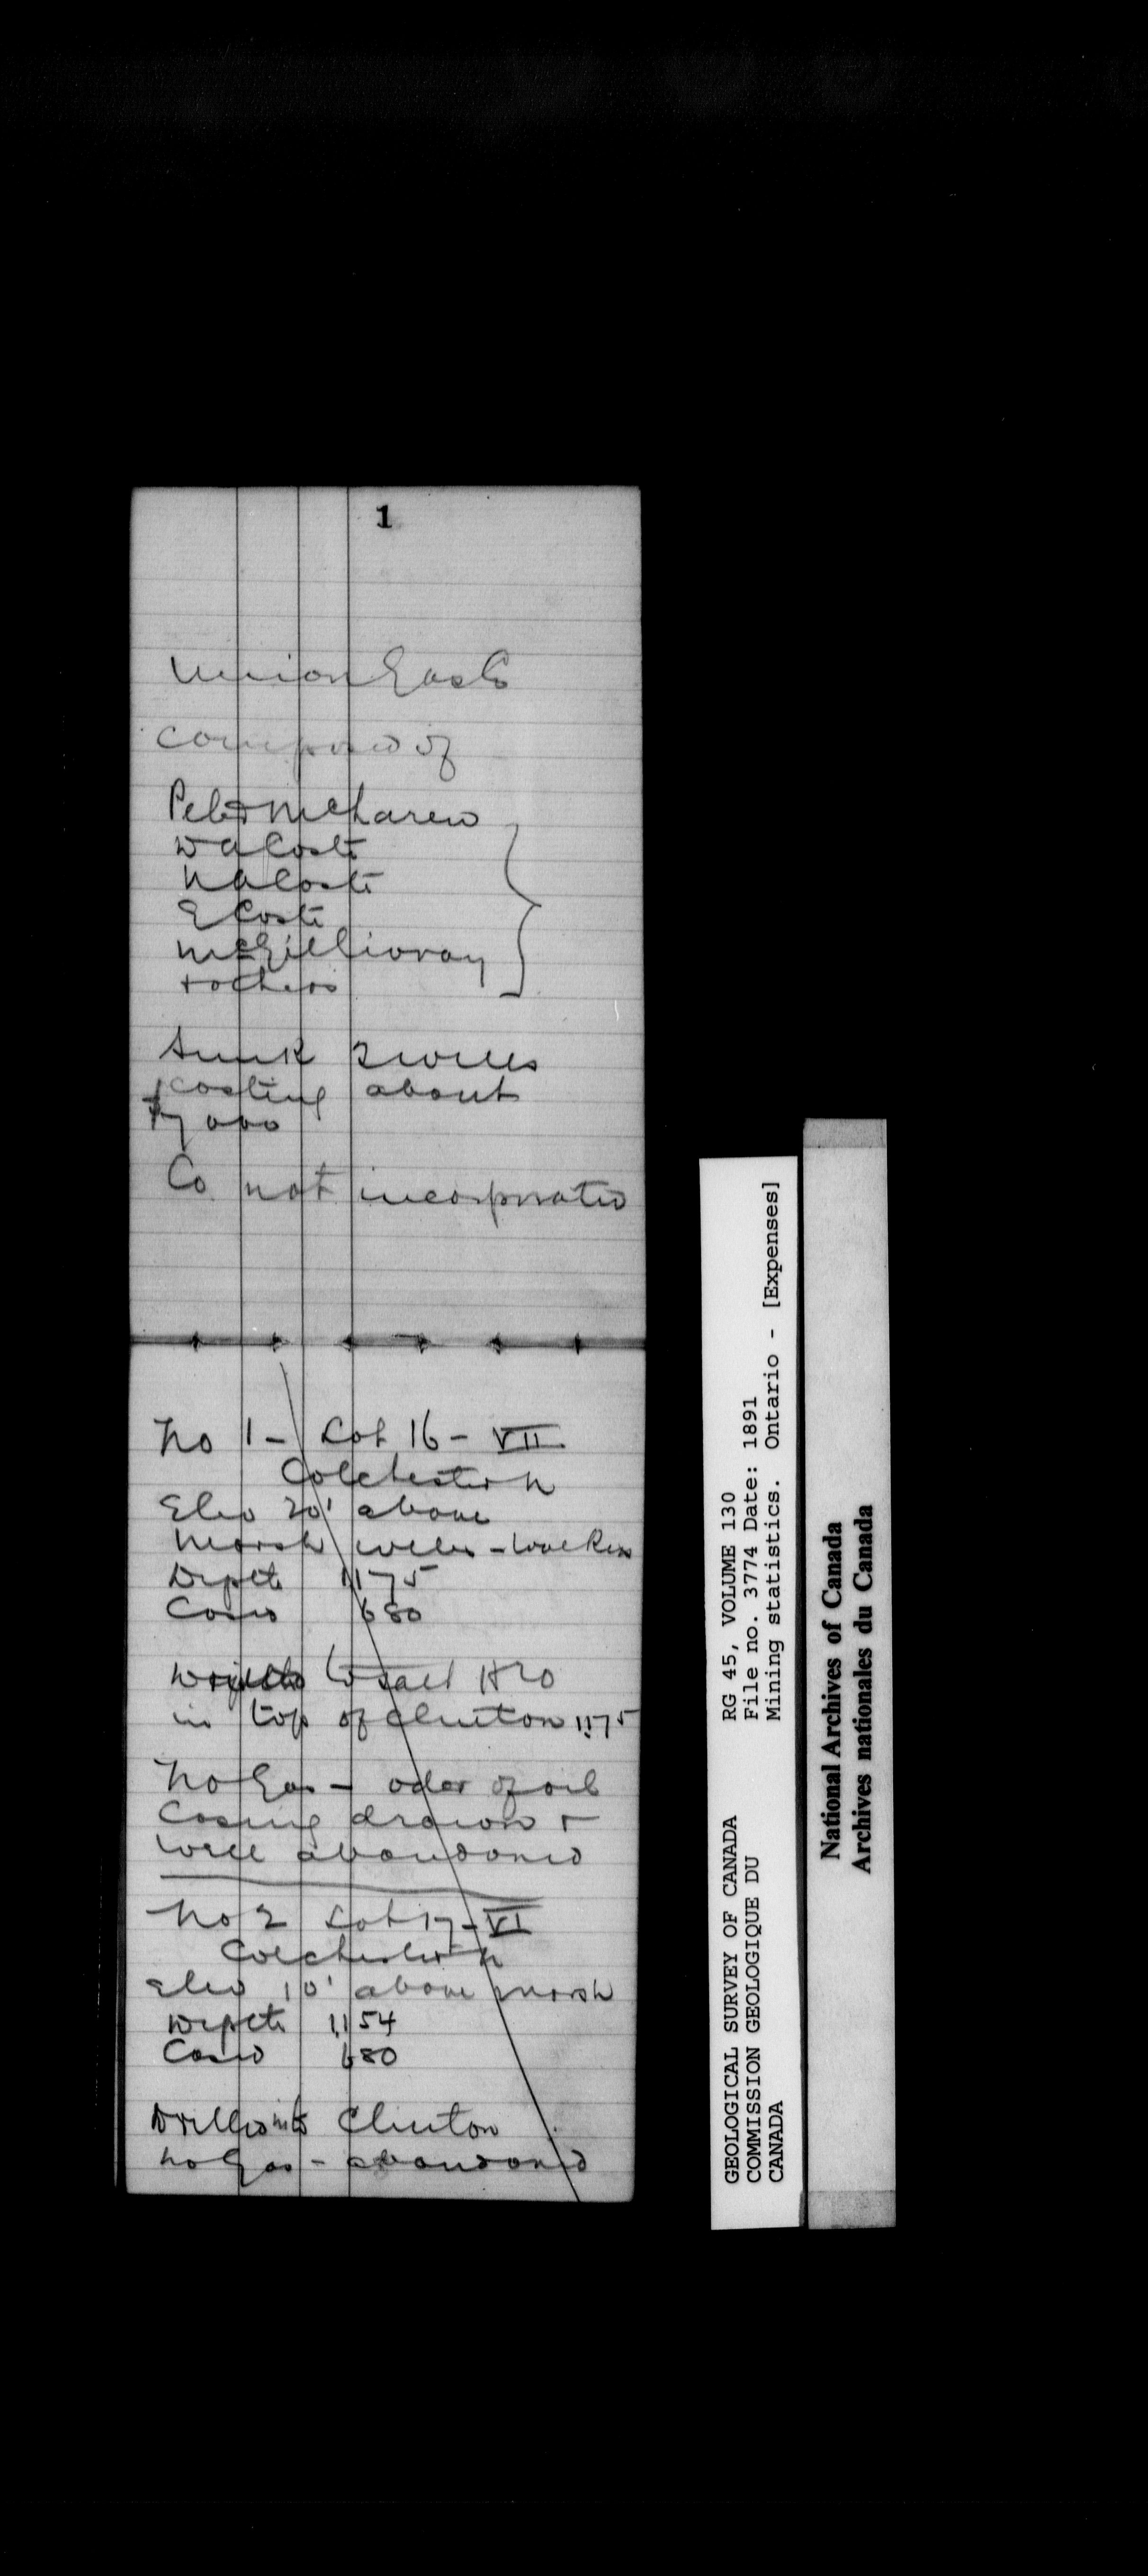 1
Union Gas Co
composed of
Peter McLaren
D A Coste
N A Coste
E Coste
McGillivray
+ others
Sunk 2 wells
costing about
$7000
Co not incorporated
No 1 - Lot 16 - VII
Colchester N
Elev 20' above
Marsh wells -
Depth 1175
Cased 680
to salt
in top of Clinton 1175
No Gas - oder of oil
Casing drawn +
well abandoned
No 2 Lot 17 - VI
Colchester N
Elev 10' above marsh
Depth 1154
Cased 680
Drilled into Clinton
no Gas - abandoned
GEOLOGICAL SURVEY OF CANADA
COMMISSION GEOLOGIQUE DU
CANADA
RG 45, VOLUME 130
File no. 3774 Date: 1891
Mining statistics. Ontario - [Expenses]
National Archives of Canada
Archives nationales du Canada